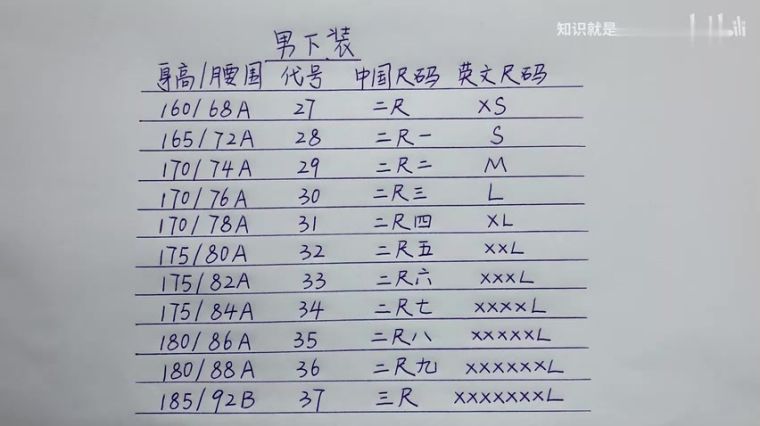 知识就是
男下装
身高/腰围 代号 中国尺码 英文尺码
160/68A 27 二尺 XS
165/72A 28 二尺一 S
170/74A 29 二尺二 M
170/76A 30 二尺三 L
170/78A 31 二尺四 XL
175/80A 32 二尺五 XXL
175/82A 33 二尺六 XXXL
175/84A 34 二尺七 XXXXL
180/86A 35 二尺八 XXXXXL
180/88A 36 二尺九 XXXXXXL
185/92B 37 三尺 XXXXXXXL